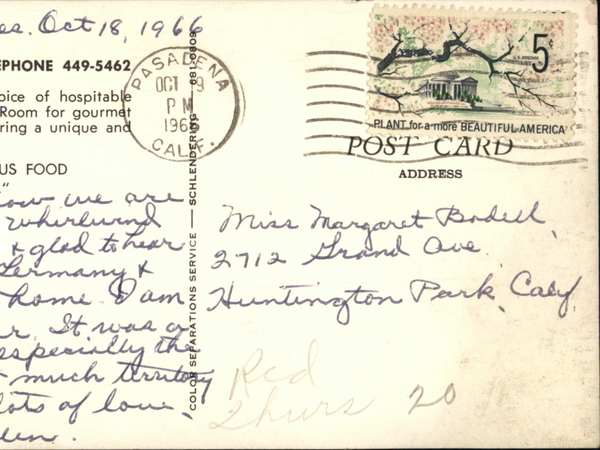 es. Oct 18, 1966
EPHONE 449-5462
oice of hospitable
Room for gourmet
ring a unique and
US FOOD
"
ow we are
whirlwind
& glad to hear
Germany &
home. I am
ar. It was a
especially the
much territory
lots of love,
len.
COLOR SEPARATIONS SERVICE — SCHLENDERING — 681-0809
PASADENA
OCT 9
PM
1966
CALIF.
5¢
U.S. POSTAGE
PLANT for a more BEAUTIFUL AMERICA
POST CARD
ADDRESS
Miss Margaret Bodell,
2712 Grand Ave.
Huntington Park, Calif.
Rcd
Thurs 20